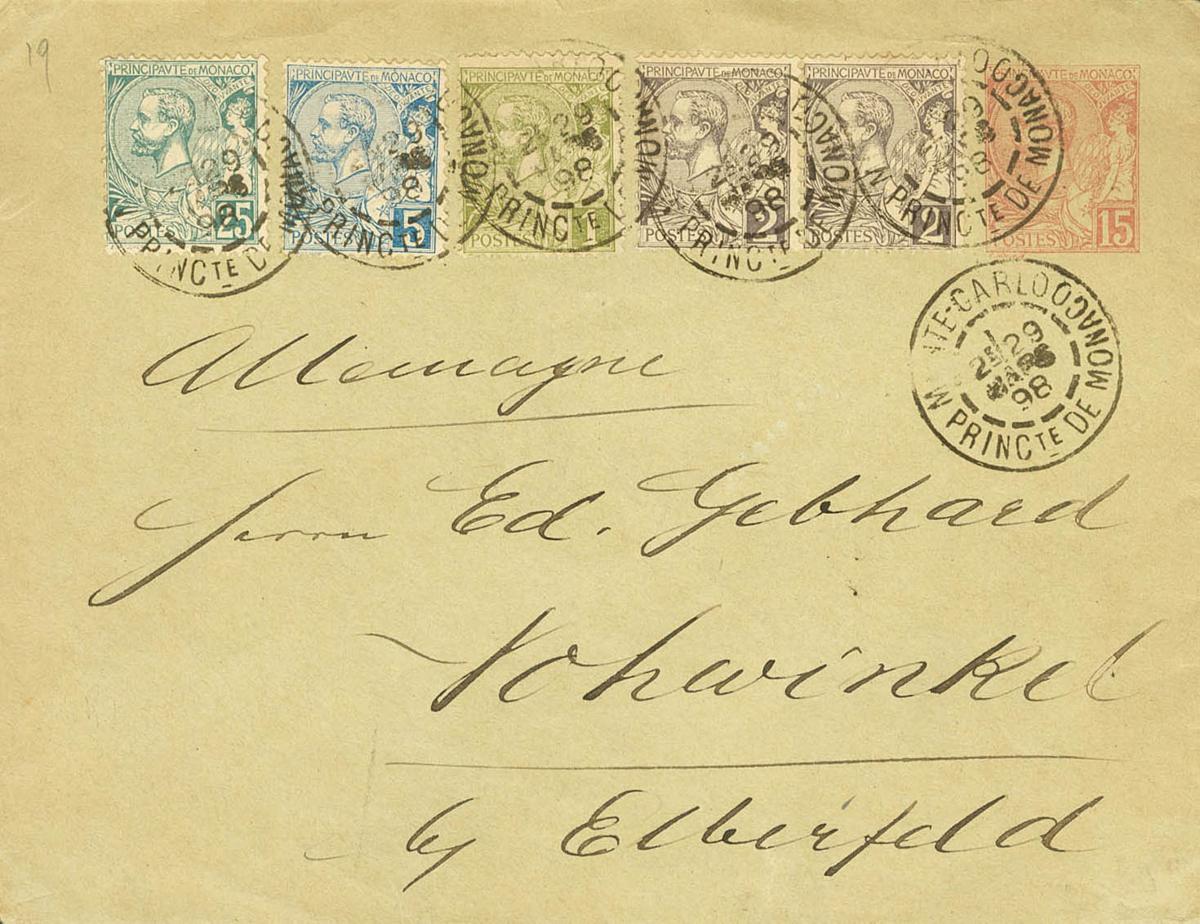 19
PRINCIPAVTE DE MONACO
POSTES 25
PRINCIPAVTE DE MONACO
POSTES 5
PRINCIPAVTE DE MONACO
POSTES 1
PRINCIPAVTE DE MONACO
POSTES 2
PRINCIPAVTE DE MONACO
POSTES 2
PRINCIPAVTE DE MONACO
POSTES 15
MONTE-CARLO
29
MARS
98
PRINCTE DE MONACO
Allemagne
Herrn Ed. Gebhard
Vohwinkel
by Elberfeld